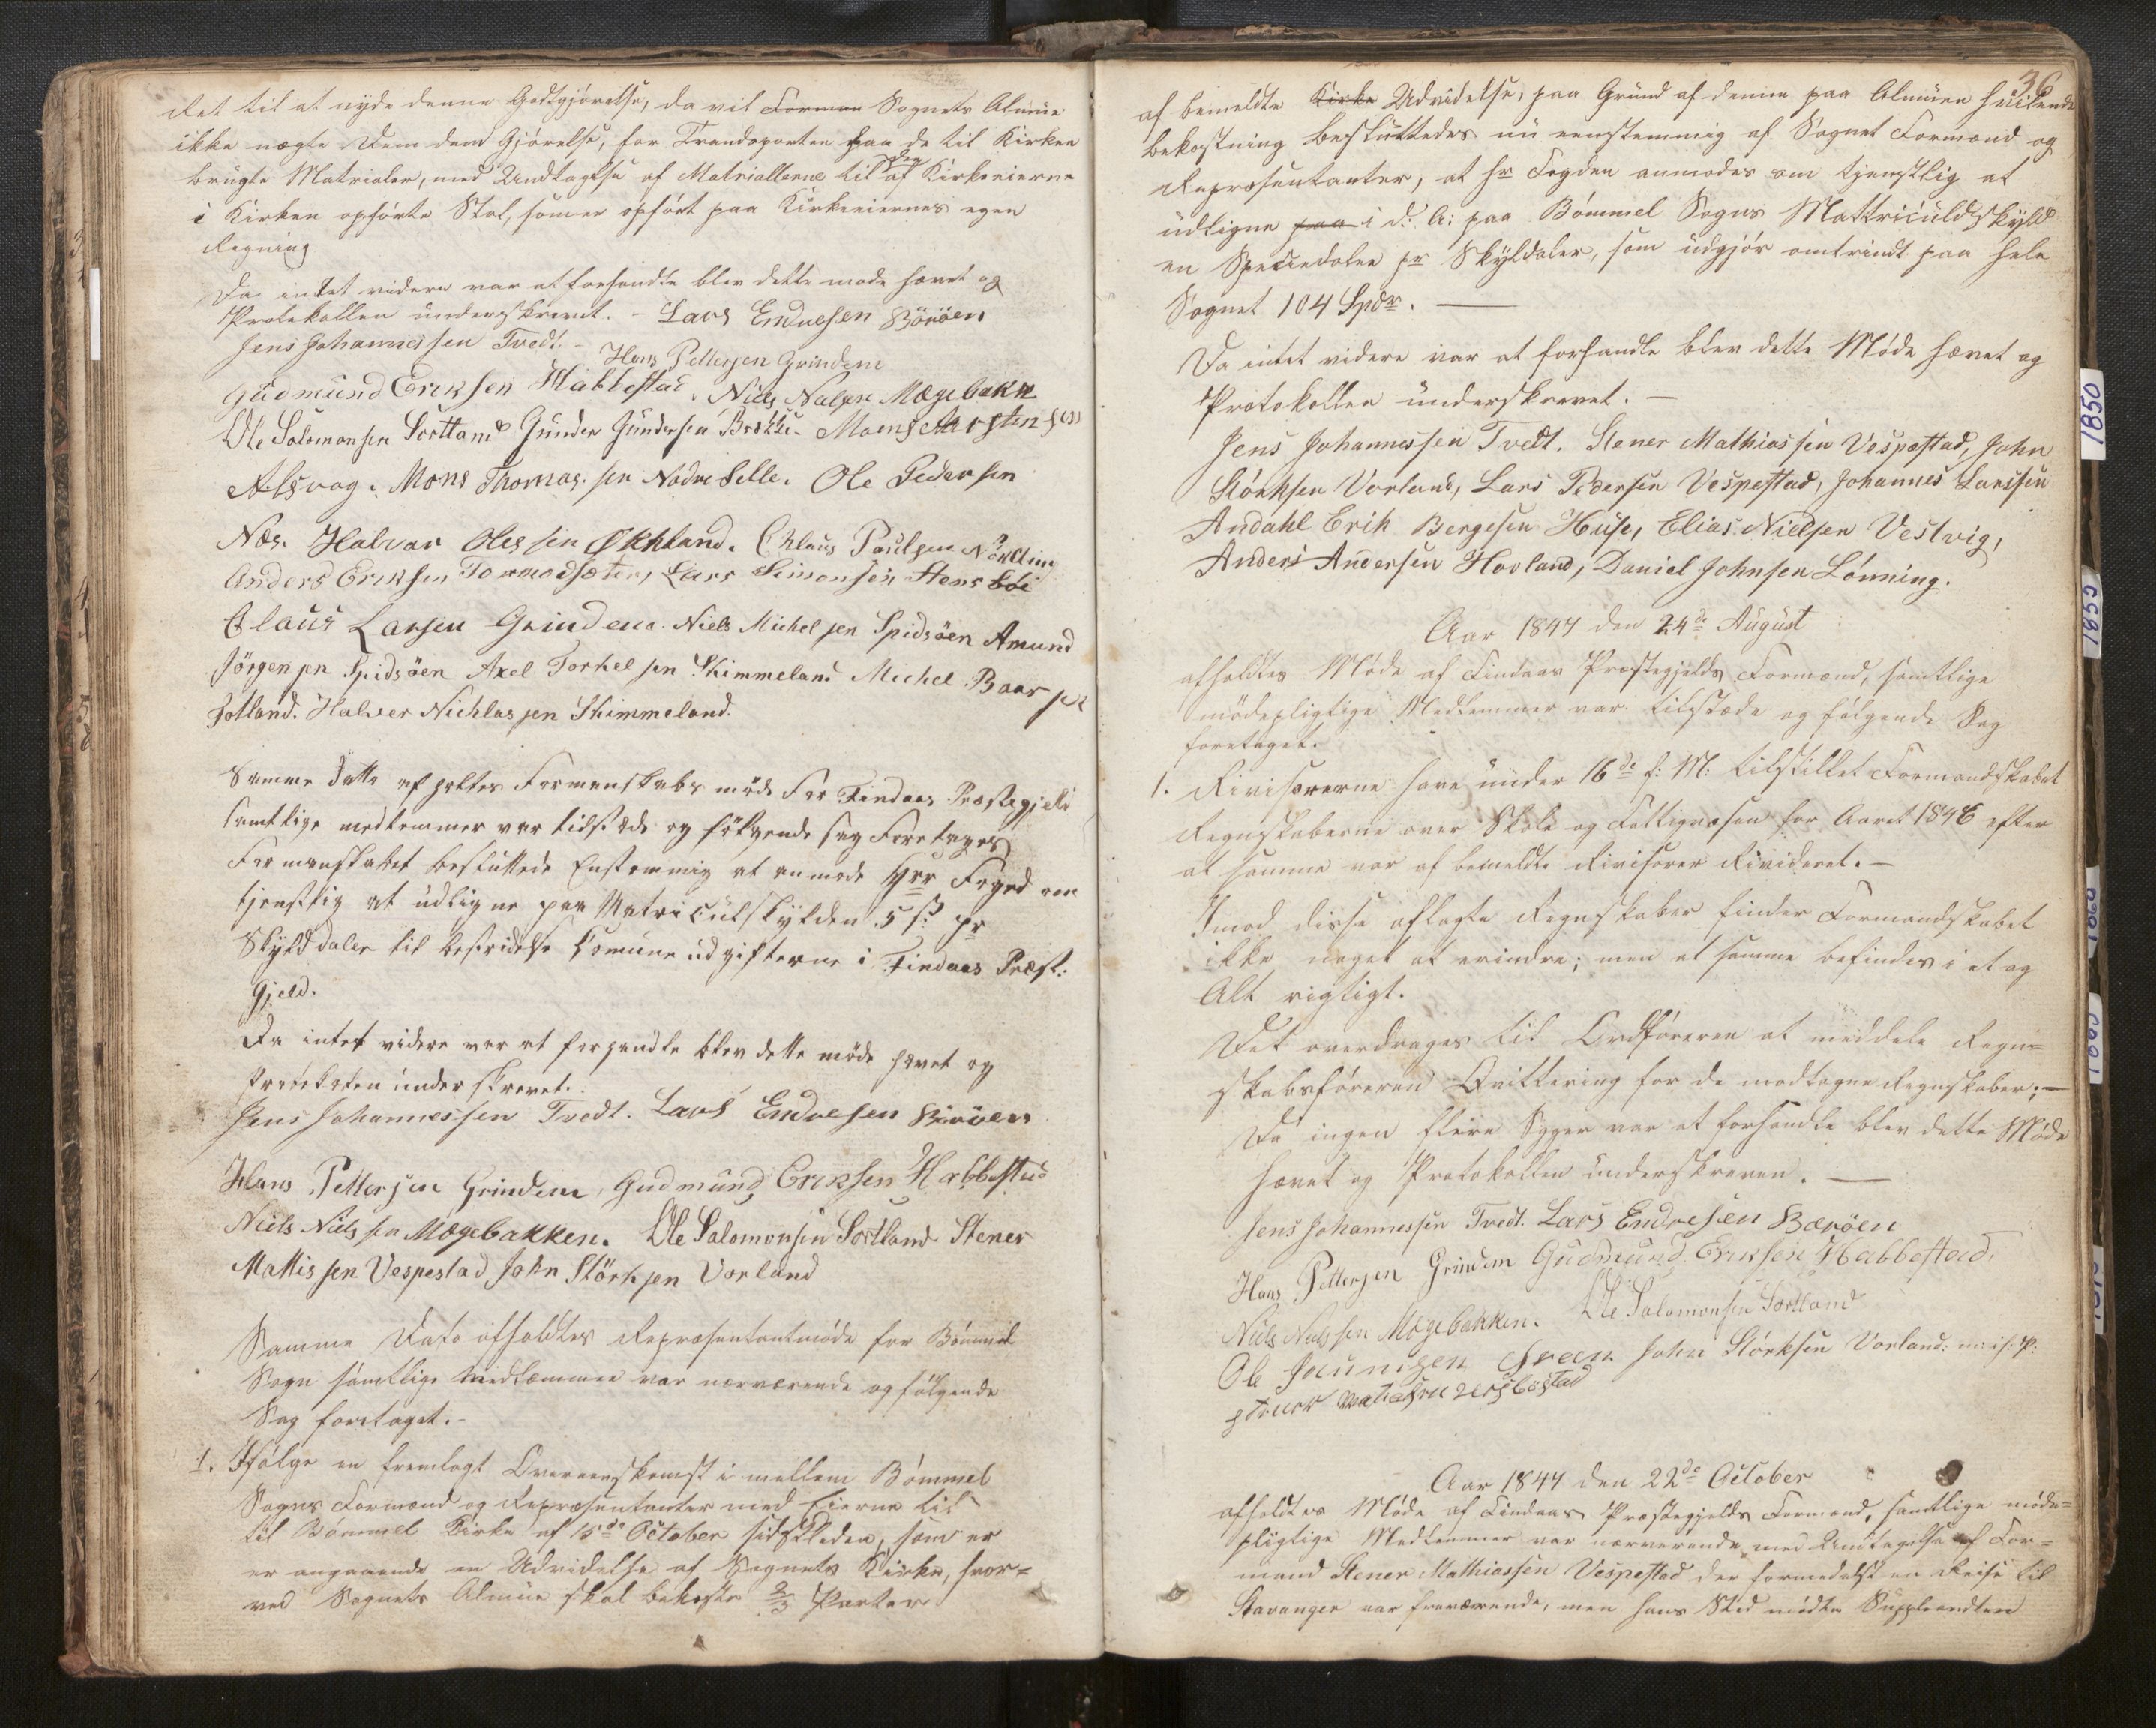 det til at nyde denne Godtgjørelse, da vil Forman Sognets Almue
ikke nægte Dem den Gjørelse, for Transporten paa de til Kirken
brugte Matrialer, med Undtagelse af Matriallerne til de af Kirkeeierne
i Kirken opførte Stol, som er opført paa Kirkeeiernes egen
Regning
Da intet videre var at forhandle blev dette møde hævet og
Protokollen underskrevet. - Lars Endresen Böröen
Jens Johannessen Tvedt. -
Hans Pettersen Grindem
Gudmund Eriksen Habbestad. Niels Nielsen Mægebakk
Ole Salomonsen Sortland Gunder Gundersen Brekke - Moens Mostensen
Alsvag. Mons Thomas.sen Nedre Selle. Ole Pedersen
Næs. Halvar Olessen Økland. Chlaus Paulsen
Anders Eriksen Tormodsæter, Lars Simonsen Stensbøe
Claus Larsen Grindem. Niels Michelsen Spidsöen Amund
Jörgensen Spidsöen Axel Torkelsen Skimmeland Michel Baarsen
Totland. Halver Nichlassen Skimmeland.
Samme Datto afholtes Formanskabs møde For Findaas Præstegjeld
samtlige medlemmer var tilstæde og følgende sag Foretages
Formanskabet besluttede Enstemmig at anmode Herr Foged om
tjenstlig at udligne paa Matriculskylden 5 ß pr
Skylddaler til bestridelse Comune udgifterne i Findaas Præst:
gjeld.
Da intet videre var at forhandle blev dette møde hævet og
protokolen underskrevet.
Jens Johannessen Tvedt. Lars Endresen Böröen
Hans Pettersen Grindem, Gudmund Eriksen Habbestad
Niels Nielssen Mægebakken. Ole Salomonsen Sortland Stener
Mattissen Vespestad John Störksen Vorland
Samme Dato afholdtes Repræsentantmøde for Bømmel
Sogn samtlige Medlemmer var nærværende og følgende
Sag foretaget. -
1. Ifølge en fremlagt Overeenskomst i mellem Bømmel
Sogns Formænd og Repræsentanter med Eierne til
til Bømmel Kirke af 15de October sidstleden, som er
er angaaende en Udvidelse af Sognets Kirke, hvor=
ved Sognets Almue skal bekoste 2/3 Parter
36
af bemeldte Kirke Udvidelse, paa Grund af denne paa Almuen hvilende
bekostning besluttedes nu eenstemmig af Sognet Formænd og
Repræsentanter, at Hr Fogden anmodes om tjenstlig at
udligne paa i d: A: paa Bømmel Sogns Mattriculdskyld
en Speciedaler pr Skylddaler, som udgjør omtrindt paa hele
Sognet 104 Spdr. —
Da intet videre var at forhandle blev dette Møde hævet og
Protokollen underskrevet. —
Jens Johannessen Tvedt. Stener Mathiassen Vespestad, John
Störksen Vorland, Lars Pedersen Vespestad, Johannes Larssen
Andahl Erik Bergesen Huse, Elias Nielsen Vestvig,
Anders Andersen Hovland, Daniel Johnsen Lønning.
Aar 1847 den 24de August
afholdtes Møde af Findaas Præstegjelds Formænd, samtlige
mødepligtige Medlemmer var tilstæde og følgende Sag
foretaget.
1. Rivisorerne have under 16de f: M: tilstillet Formandskabet
Regnskaberne over Skole og Fattigvæsen for Aaret 1846 efter
at samme var af bemeldte Rivisorer Rivideret. —
Imod disse aflagte Regnskaber finder Formandskabet
ikke noget at erindre; men at samme befindes i et og
Alt rigtigt.
Det overdrages til Ordføreren at meddele Regn=
skabsføreren Qvittering for de modtagne Regnskaber; —
Da ingen flere Sager var at forhandle blev dette Møde
hævet og Protokollen underskreven. —
Jens Johannessen Tvedt. Lars Endresen Bæröen
Hans Pettersen Grindem Gudmund Eriksen Habbestad,
Niels Nielssen Mægebakken. Ole Salomonsen Sortland
Ole John Störksen Vorland:
Vespestad
Aar 1847 den 22de October
afholdtes Møde af Findaas Præstegjelds Formænd, samtlige møde=
pligtige Medlemmer var nærværende med Undtagelse af For=
mand Stener Mathiassen Vespestad der formedelst en Reise til
Stavanger var fraværende, men hans Sted mødte Suppleandten
1850
1855
1860
1865